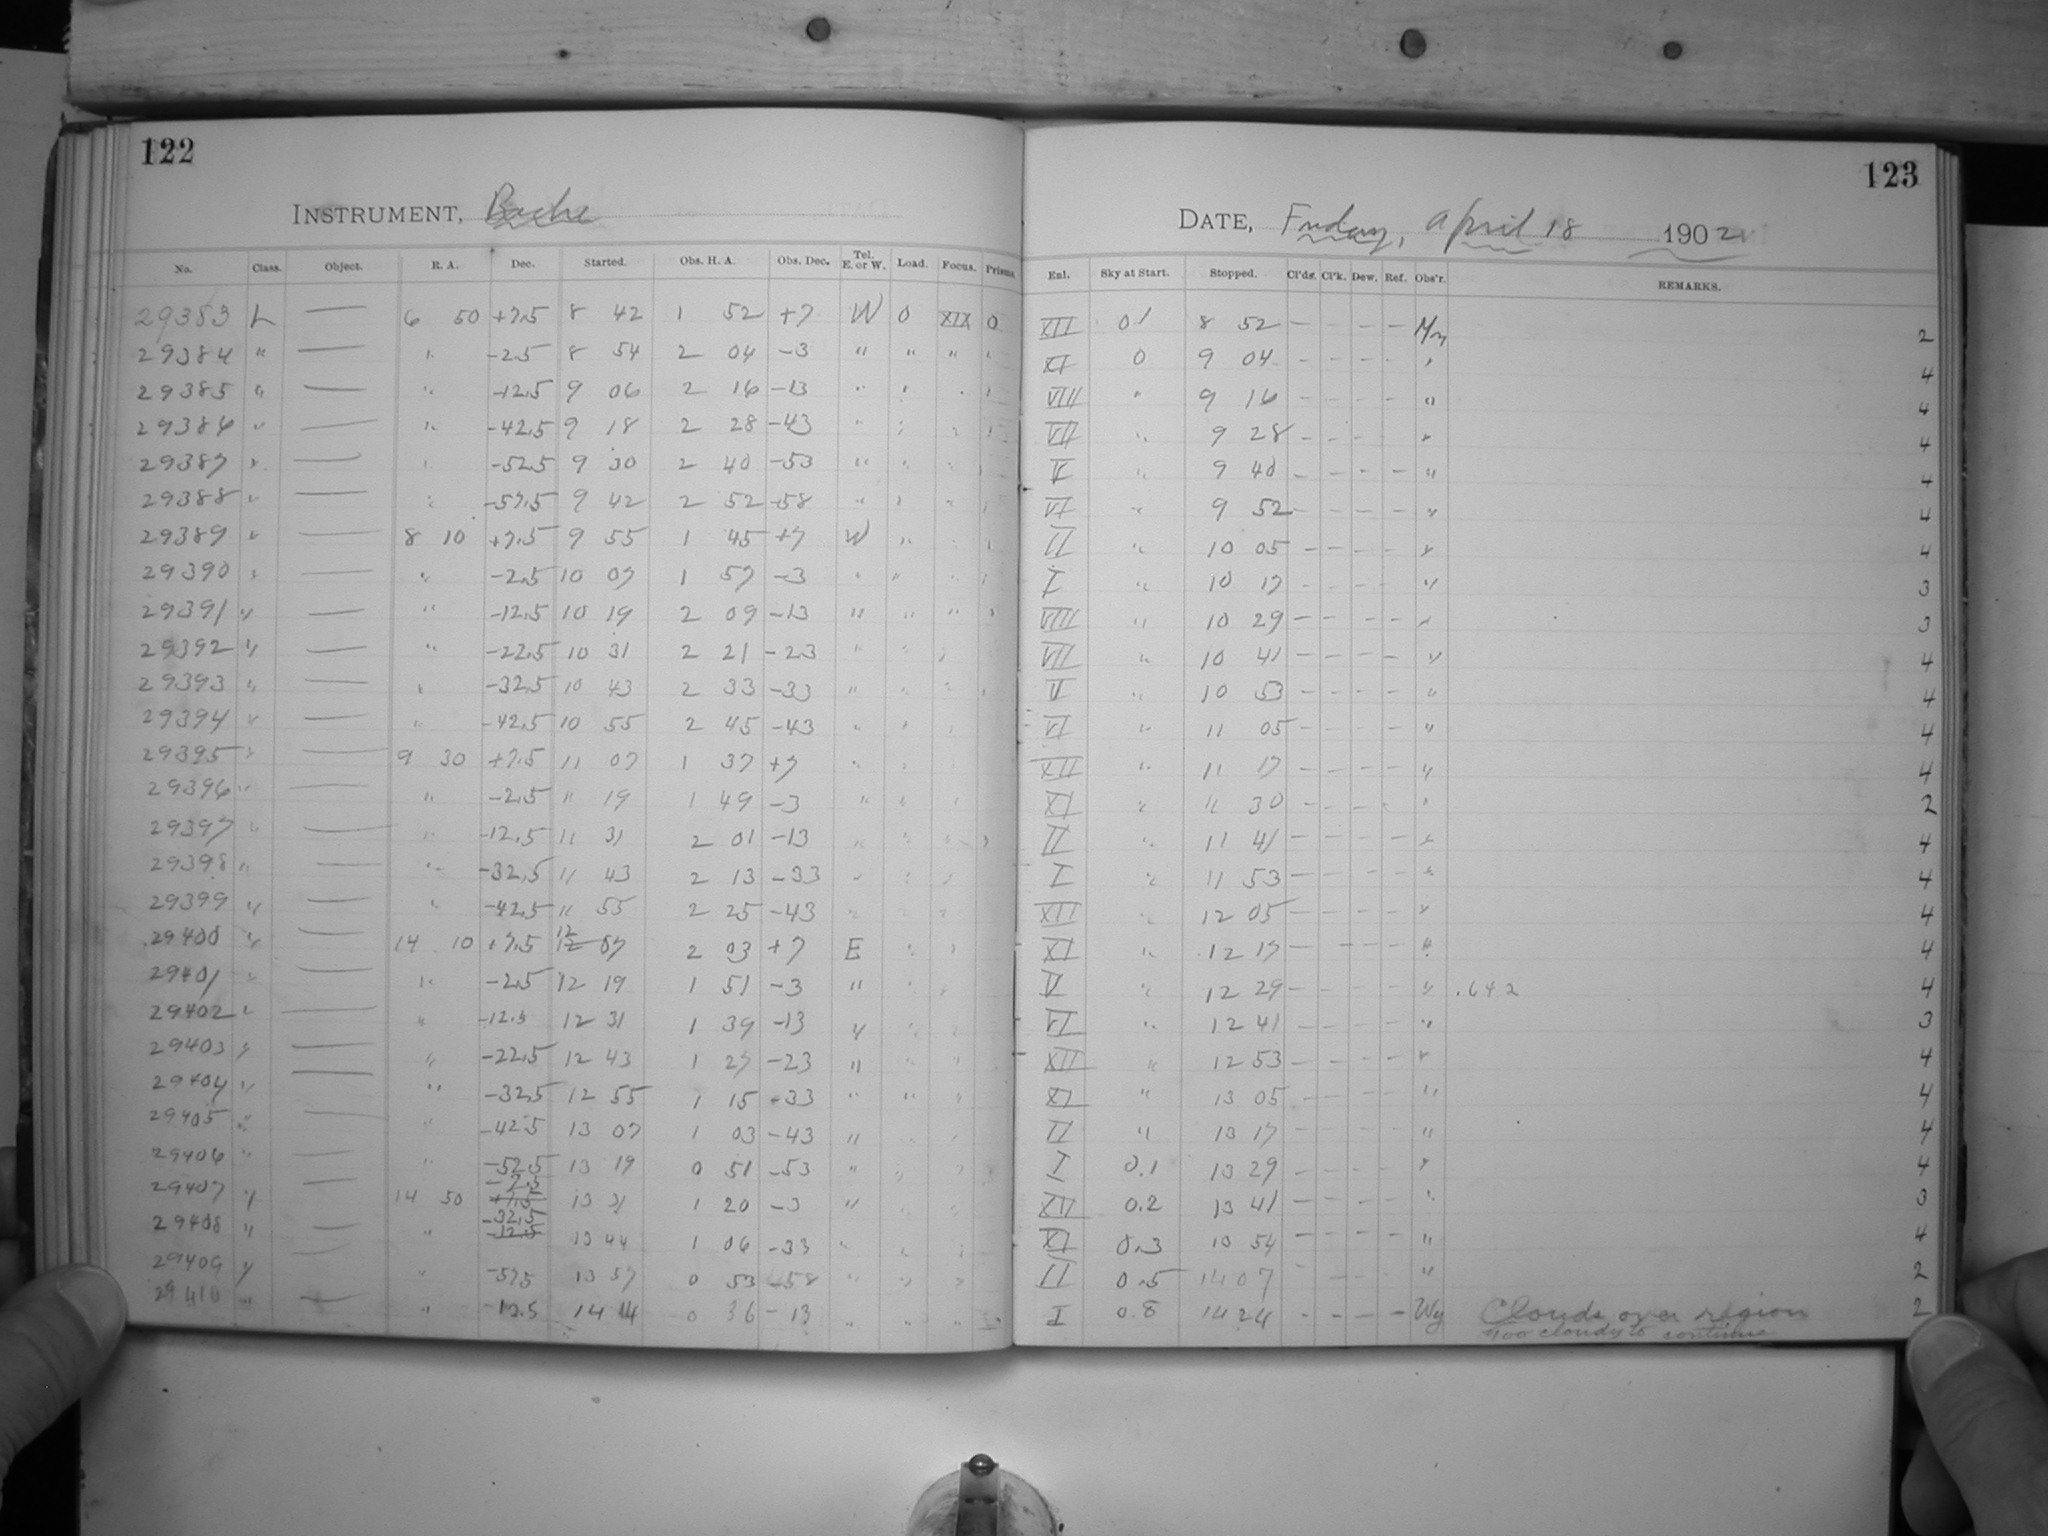 122
INSTRUMENT, Bache
No. Class. Object. R. A. Dec. Started. Obs. H. A. Obs. Dec. Tel. E. or W. Load. Focus. Prisms.
29383 L — 6 50 +7.5 8 42 1 52 +7 W 0 XIX 0
29384 " — " -2.5 8 54 2 04 -3 " " " "
29385 " — " -12.5 9 06 2 16 -13 " " " "
29386 " — " -42.5 9 18 2 28 -43 " " " "
29387 " — " -52.5 9 30 2 40 -53 " " " "
29388 " — " -57.5 9 42 2 52 -58 " " " "
29389 " — 8 10 +7.5 9 55 1 45 +7 W " " "
29390 " — " -2.5 10 07 1 57 -3 " " " "
29391 " — " -12.5 10 19 2 09 -13 " " " "
29392 " — " -22.5 10 31 2 21 -23 " " "
29393 " — " -32.5 10 43 2 33 -33 " " " "
29394 " — " -42.5 10 55 2 45 -43 " " "
29395 " — 9 30 +7.5 11 07 1 37 +7 " " "
29396 " — " -2.5 " 19 1 49 -3 " " "
29397 " — " -12.5 11 31 2 01 -13 " " " "
29398 " — " -32.5 11 43 2 13 -33 " " "
29399 " — " -42.5 " 55 2 25 -43 " " "
29400 " — 14 10 +7.5 12 07 2 03 +7 E " "
29401 " — " -2.5 12 19 1 51 -3 " " "
29402 " — " -12.5 12 31 1 39 -13 " " "
29403 " — " -22.5 12 43 1 27 -23 " " "
29404 " — " -32.5 12 55 1 15 -33 " " "
29405 " — " -42.5 13 07 1 03 -43 " " "
29406 " — " -52.5 13 19 0 51 -53 " " "
29407 " — 14 50 -2.5 13 31 1 20 -3 " " "
29408 " — " -32.5 13 44 1 06 -33 " " "
29409 " — " -57.5 13 57 0 53 -58 " " "
29410 " — " -12.5 14 14 0 36 -13 " " "
123
DATE, Friday, April 18 1902
Enl. Sky at Start. Stopped. Cl'ds. Cl'k. Dew. Ref. Obs'r. REMARKS.
XII 01 8 52 — — — — 2
XI 0 9 04 — — — — " 4
VIII " 9 16 — — — — " 4
VII " 9 28 — — — — " 4
V " 9 40 — — — — " 4
VI " 9 52 — — — — " 4
II " 10 05 — — — — " 4
I " 10 17 — — — — " 3
VIII " 10 29 — — — — " 3
VII " 10 41 — — — — " 4
V " 10 53 — — — — " 4
VI " 11 05 — — — — " 4
XII " 11 17 — — — — " 4
XI " " 30 — — — — " 2
II " 11 41 — — — — " 4
I " 11 53 — — — — " 4
XII " 12 05 — — — — " 4
XI " 12 17 — — — — " 4
V " 12 29 — — — — " .642 4
VI " 12 41 — — — — " 3
XII " 12 53 — — — — " 4
XI " 13 05 — — — — " 4
II " 13 17 — — — — " 4
I 0.1 13 29 — — — — " 4
0.2 13 41 — — — — " 3
XI 0.3 13 54 — — — — " 4
II 0.5 14 07 — — — " 2
I 0.8 14 24 — — — — Wy Clouds over region 2
Too cloudy to continue